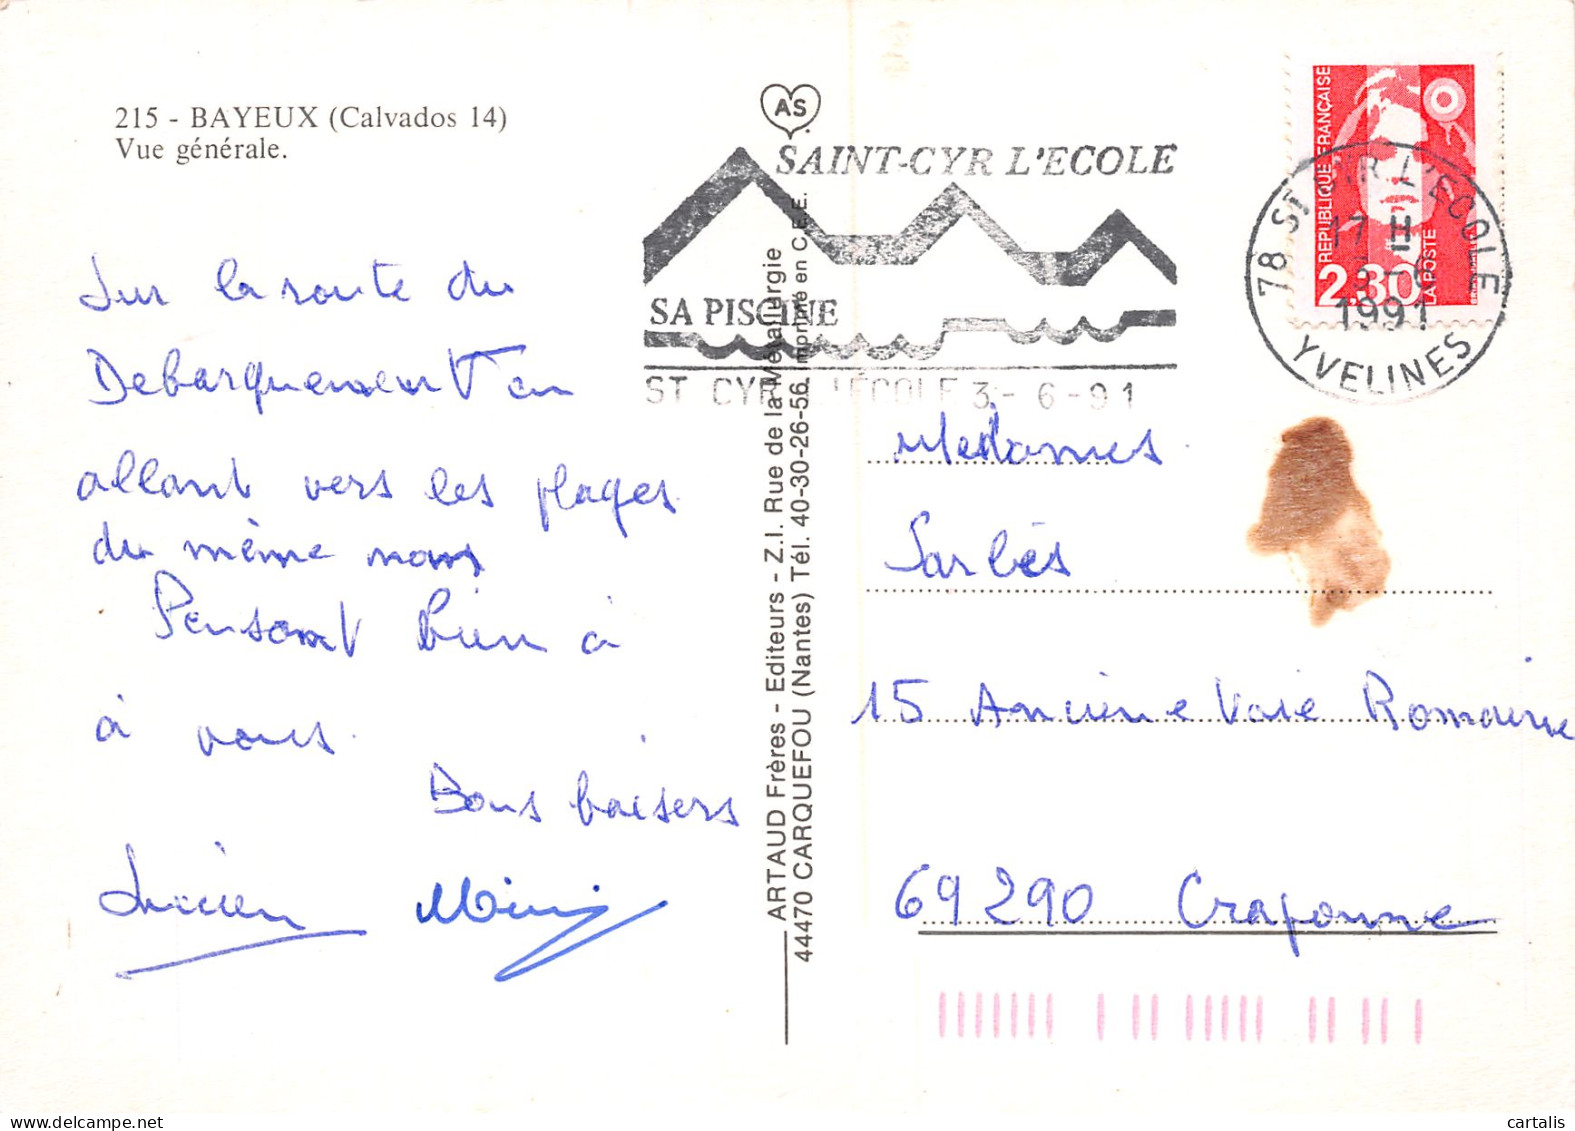 215 - BAYEUX (Calvados 14)
Vue générale.
Sur la route du
Debarquement en
allant vers les plages
du même nom
Pensant bien à
à vous.
Bons baisers
Lucien Mimi
AS
SAINT-CYR L'ECOLE
SA PISCINE
ST CYR L'ÉCOLE 3-6-91
ARTAUD Frères - Editeurs - Z.I. Rue de la Métallurgie
44470 CARQUEFOU (Nantes) Tél. 40-30-26-56 Imprimé en C.E.E.
REPUBLIQUE FRANÇAISE
2,30
LA POSTE
78 ST CYR L'ECOLE
17 H
1991
YVELINES
Mesdames
Sarlés
15 Ancienne Voie Romaine
69290 Craponne
cartalis